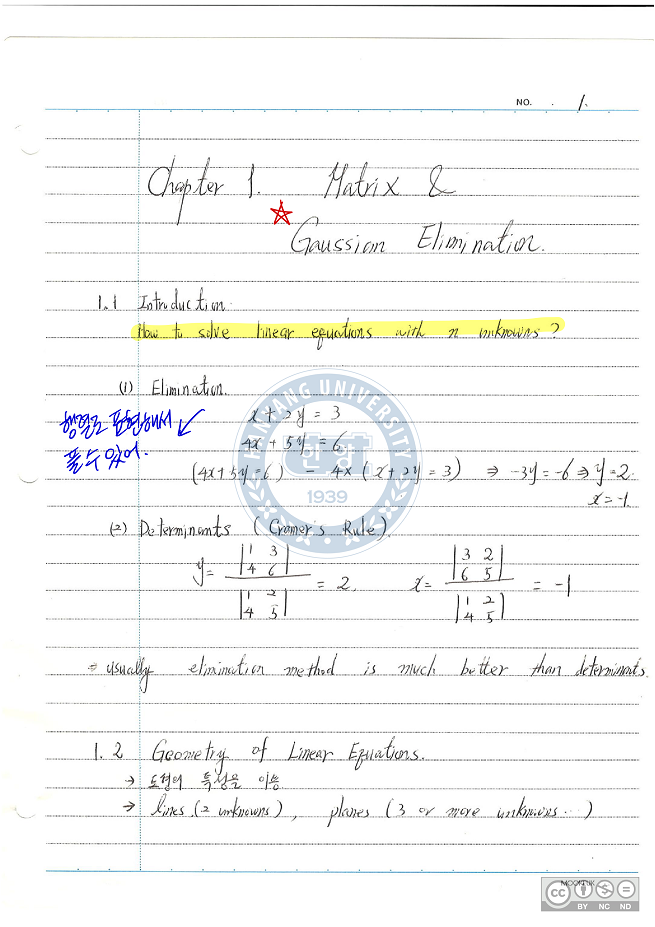 NO. . 1.
Chapter 1. Matrix &
Gaussian Elimination.
1.1 Introduction.
How to solve linear equations with n unknowns?
(1) Elimination.
행렬로 표현해서
풀 수 있어.
x + 2y = 3
4x + 5y = 6.
(4x+5y=6) - 4x (x+2y=3) ⇒ -3y=-6 ⇒ y=2.
x=-1.
(2) Determinants (Cramer's Rule).
y= |1 3| |4 6| / |1 2| |4 5| = 2, x= |3 2| |6 5| / |1 2| |4 5| = -1
⇒ usually elimination method is much better than determinants.
1.2 Geometry of Linear Equations.
→ 도형의 특성을 이용
→ lines (2 unknowns), planes (3 or more unknowns ...)
HANYANG UNIVERSITY
한양
1939
MOOKEUK
cc BY NC ND